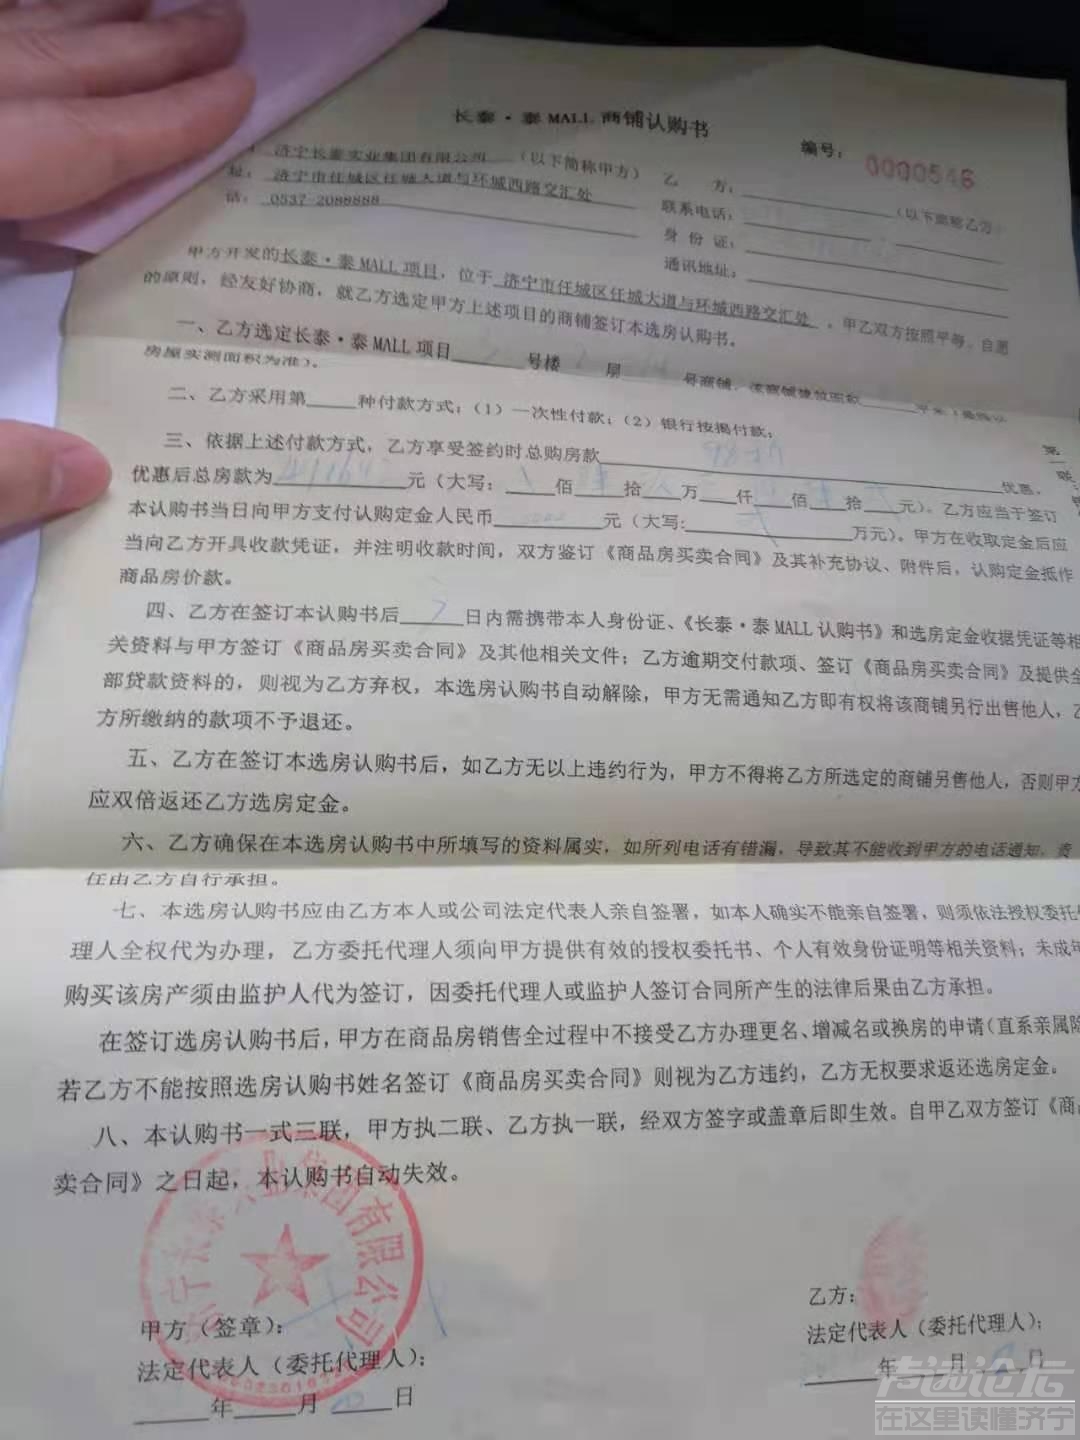 长泰·泰MALL 商铺认购书
编号：
0000546
济宁长泰实业集团有限公司 （以下简称甲方）
乙 方： （以下简称乙方
址： 济宁市任城区任城大道与环城西路交汇处
联系电话：
话： 0537-2088888
身 份 证：
通讯地址：
甲方开发的长泰·泰MALL 项目，位于 济宁市任城区任城大道与环城西路交汇处 ，甲乙双方按照平等、自愿
的原则，经友好协商，就乙方选定甲方上述项目的商铺签订本选房认购书。
一、乙方选定长泰·泰MALL 项目 号楼 层 号商铺，该商铺建筑面积
房屋实测面积为准）。
二、乙方采用第 种付款方式；（1）一次性付款；（2）银行按揭付款；
三、依据上述付款方式，乙方享受签约时总购房款 优惠，
优惠后总房款为 元（大写： 佰 拾 万 仟 佰 拾 元）。乙方应当于签订
本认购书当日向甲方支付认购定金人民币 元（大写: 万元）。甲方在收取定金后应
当向乙方开具收款凭证，并注明收款时间，双方签订《商品房买卖合同》及其补充协议、附件后，认购定金抵作
商品房价款。
四、乙方在签订本认购书后 日内需携带本人身份证、《长泰·泰MALL 认购书》和选房定金收据凭证等相
关资料与甲方签订《商品房买卖合同》及其他相关文件；乙方逾期交付款项、签订《商品房买卖合同》及提供全
部贷款资料的，则视为乙方弃权，本选房认购书自动解除，甲方无需通知乙方即有权将该商铺另行出售他人，乙
方所缴纳的款项不予退还。
五、乙方在签订本选房认购书后，如乙方无以上违约行为，甲方不得将乙方所选定的商铺另售他人，否则甲方
应双倍返还乙方选房定金。
六、乙方确保在本选房认购书中所填写的资料属实，如所列电话有错漏，导致其不能收到甲方的电话通知，责
任由乙方自行承担。
七、本选房认购书应由乙方本人或公司法定代表人亲自签署，如本人确实不能亲自签署，则须依法授权委托
理人全权代为办理，乙方委托代理人须向甲方提供有效的授权委托书、个人有效身份证明等相关资料；未成年
购买该房产须由监护人代为签订，因委托代理人或监护人签订合同所产生的法律后果由乙方承担。
在签订选房认购书后，甲方在商品房销售全过程中不接受乙方办理更名、增减名或换房的申请（直系亲属除
若乙方不能按照选房认购书姓名签订《商品房买卖合同》则视为乙方违约，乙方无权要求返还选房定金。
八、本认购书一式三联，甲方执二联、乙方执一联，经双方签字或盖章后即生效。自甲乙双方签订《商品
卖合同》之日起，本认购书自动失效。
济宁长泰实业集团有限公司
甲方（签章）：
乙方：
法定代表人（委托代理人）：
法定代表人（委托代理人）；
年 月 日
年 月 日
在这里读懂济宁